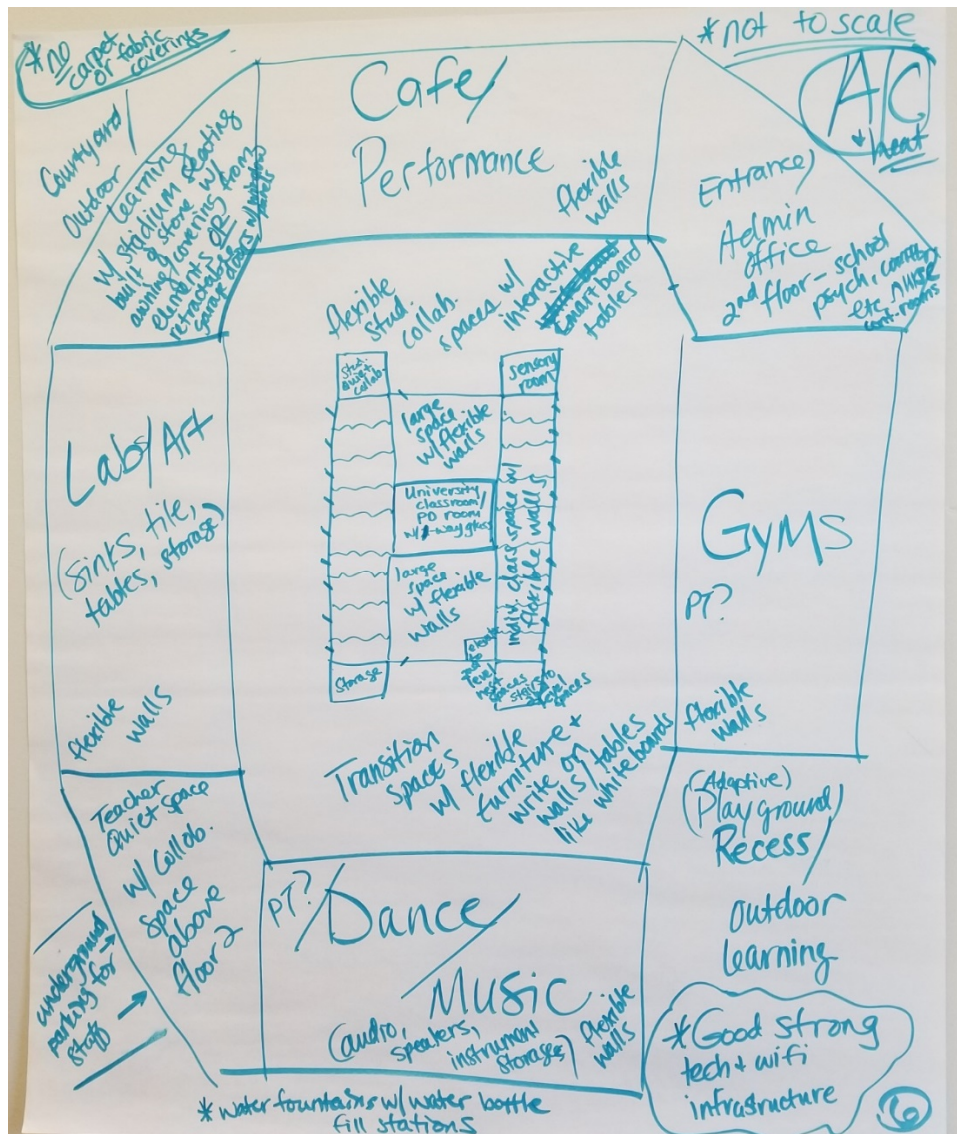 *no
carpet
or fabric
coverings
*not to scale
A/C
+ heat
Courtyard/
Outdoor
learning
w/ stadium seating
built of stone w/
awning/covering from
elements OR
retractable
garage doors w/ windows
panels
Cafe/
Performance
flexible
walls
Entrance/
Admin
office
2nd floor - school
psych,
etc. Nurse
conf. rooms
flexible
stud.
collab.
spaces w/
interactive
smartboard
tables
Stud.
quiet
collab.
sensory
room
large
space
w/ flexible
walls
University
classroom/
PD room
w/ 1-way glass
large
space
w/ flexible
walls
indiv. class space w/
flexible walls
Storage
level
spaces
stairs to
level
spaces
Labs/Art
(sinks, tile,
tables, storage)
flexible
walls
Gyms
PT?
flexible
walls
Transition
spaces
w/ flexible
furniture +
write on
walls/tables
like whiteboards
Teacher
Quiet space
w/ collab.
space
above
floor 2
underground
parking for
staff
PT?/
Dance/
Music
(audio,
speakers,
instrument
storage)
flexible
walls
(Adaptive)
Playground/
Recess/
outdoor
learning
*Good strong
tech + wifi
infrastructure
6
*water fountains w/ water bottle
fill stations